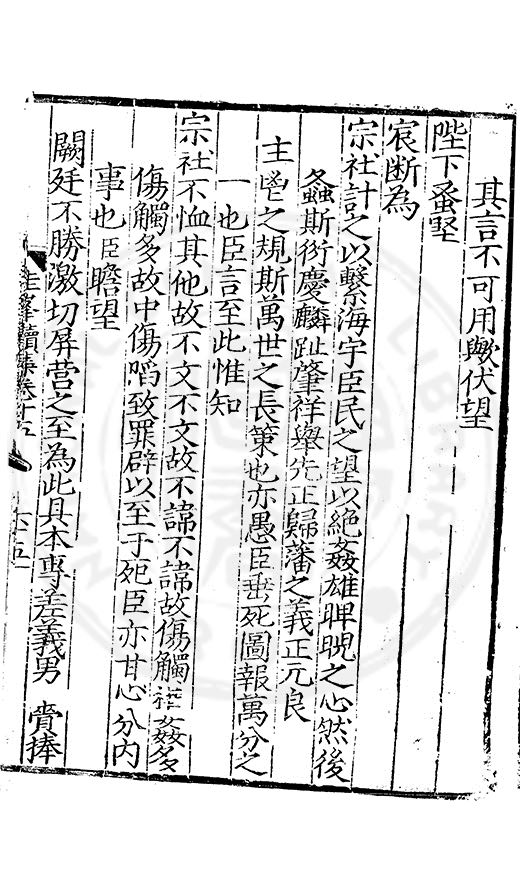 其言不可用歟伏望
陛下蚤堅
宸断為
宗社計之以繫海宇臣民之望以絶姦雄睥睨之心然後
螽斯衍慶麟趾肇祥舉先正歸藩之義正元良
主鬯之規斯萬世之長策也亦愚臣垂死圖報萬分之
一也臣言至此惟知
宗社不恤其他故不文不文故不諱不諱故傷觸權姦多
傷觸多故中傷陷致罪辟以至于死臣亦甘心分内
事也臣瞻望
闕廷不勝激切屏营之至為此具本專差義男 賫捧
圭峯續集卷十五
六五